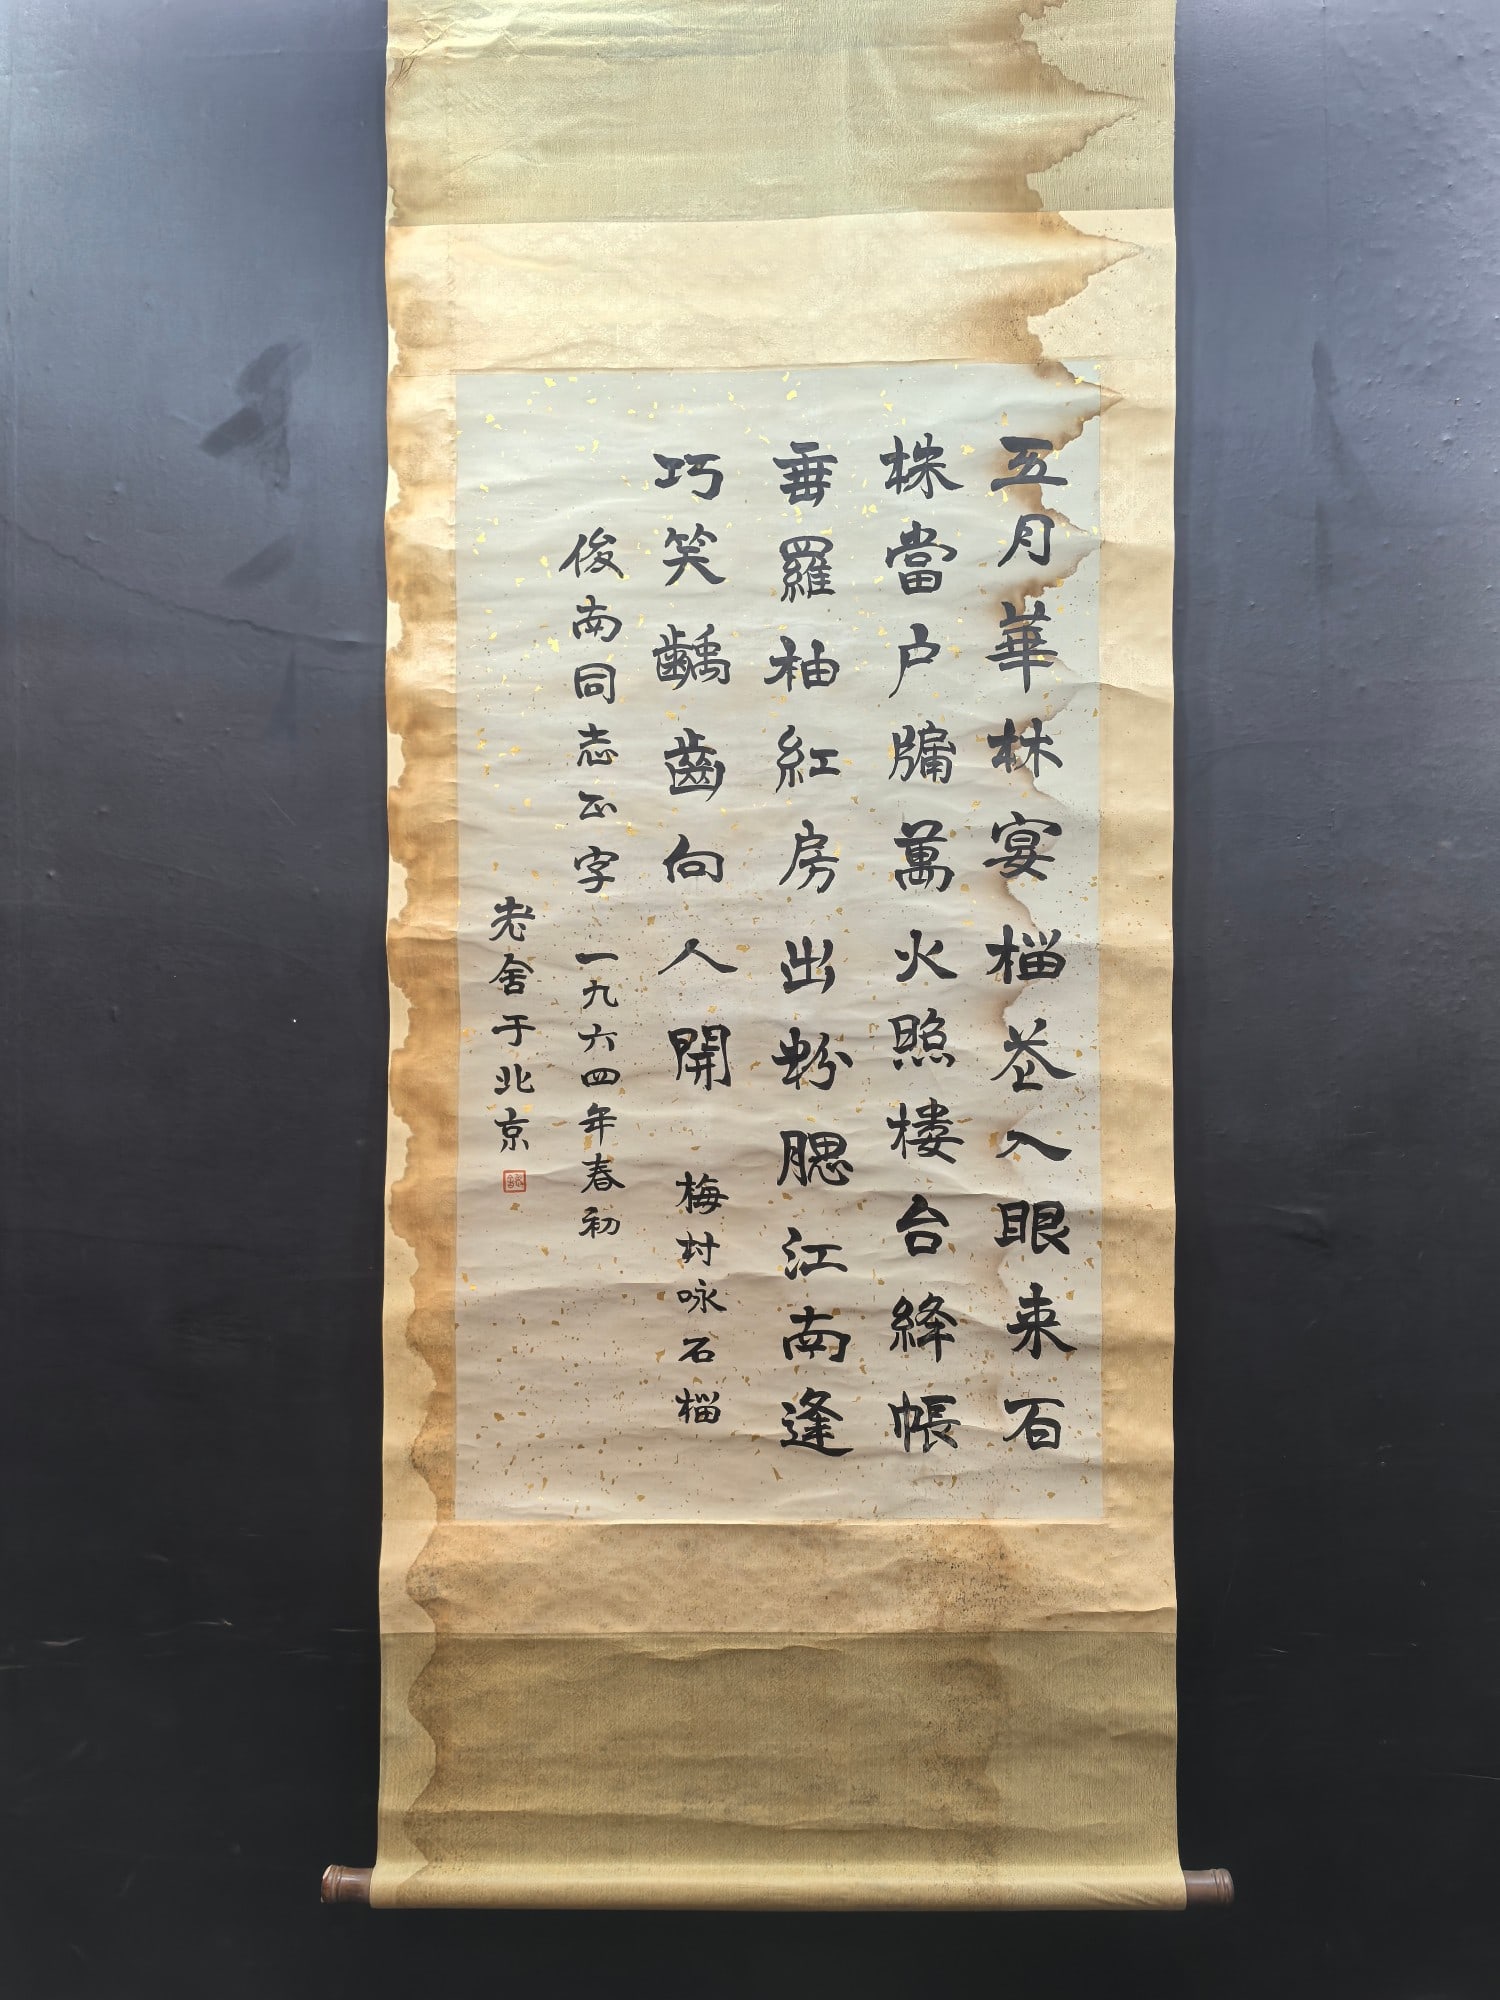 五月華林宴榴花入眼来百
株當户牖萬火照楼台絳帳
垂羅袖紅房出粉腮江南逢
巧笑齲齒向人開 梅村咏石榴
俊南同志正字 一九六四年春初
老舍于北京